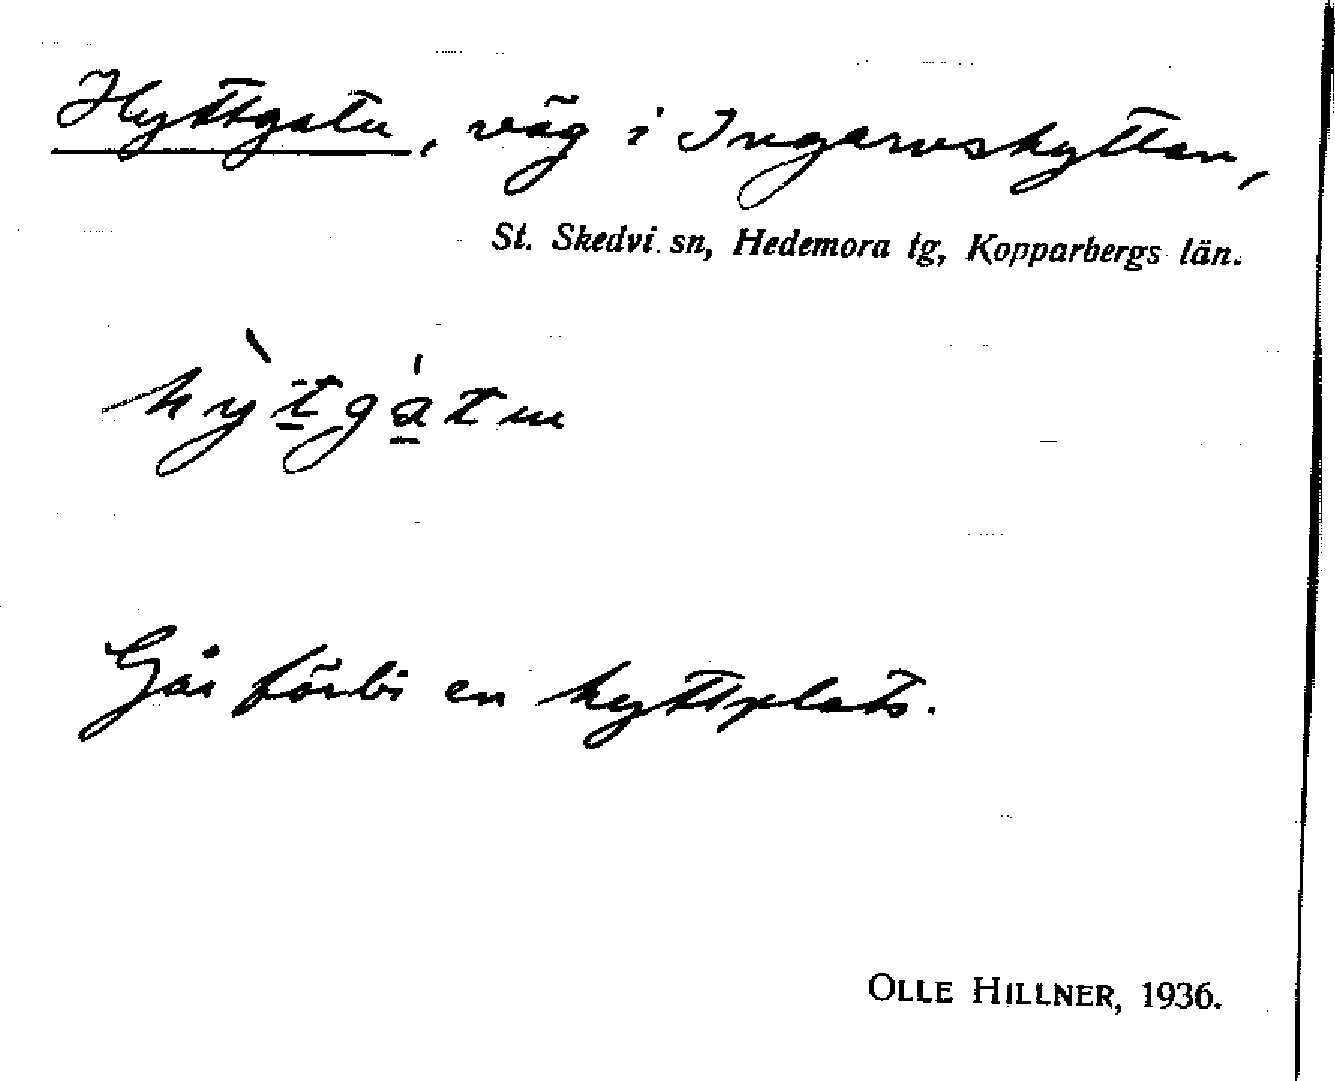 Hyttgatu, väg i Ingarvshyttan,
St. Skedvi sn, Hedemora tg, Kopparbergs län.
hỳt̲gá̲tu
Går förbi en hyttplats.
OLLE HILLNER, 1936.